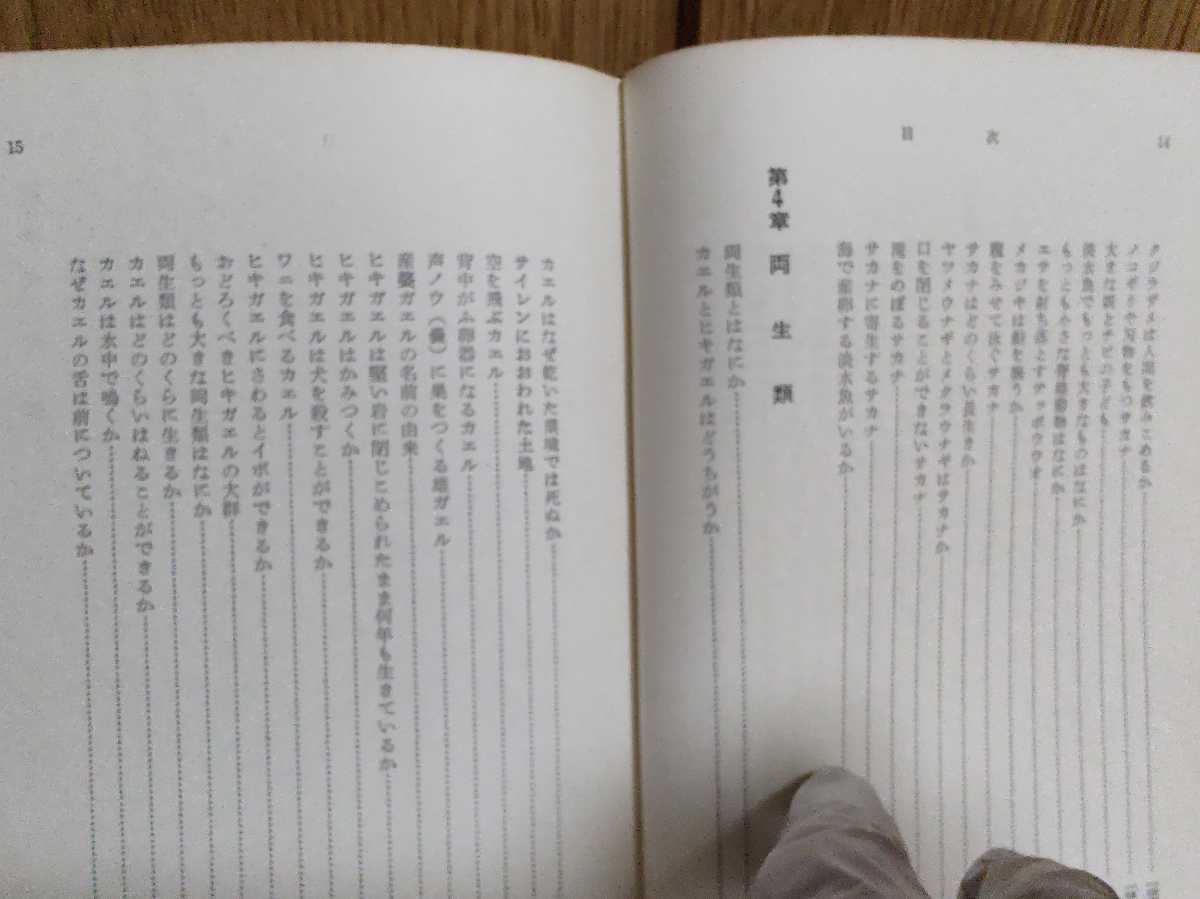 目次
14
クジラザメは人間を飲みこめるか
ノコギリや刃物をもつサカナ
大きな親とチビの子ども
淡水魚でもっとも大きなものはなにか
もっとも小さな脊椎動物はなにか
エサを射ち落とすテッポウウオ
メカジキは船を襲うか
腹をみせて泳ぐサカナ
サカナはどのくらい長生きか
ヤツメウナギとメクラウナギはサカナか
口を閉じることができないサカナ
滝をのぼるサカナ
サカナに寄生するサカナ
海で産卵する淡水魚がいるか
第4章 両生類
両生類とはなにか
カエルとヒキガエルはどうちがうか
15
カエルはなぜ乾いた環境では死ぬか
サイレンにおおわれた土地
空を飛ぶカエル
背中がふ卵器になるカエル
声ノウ（嚢）に巣をつくる雄ガエル
産婆ガエルの名前の由来
ヒキガエルは堅い岩に閉じこめられたまま何年も生きているか
ヒキガエルはかみつくか
ヒキガエルは犬を殺すことができるか
ワニを食べるカエル
ヒキガエルにさわるとイボができるか
おどろくべきヒキガエルの大群
もっとも大きな両生類はなにか
両生類はどのくらいに生きるか
カエルはどのくらいはねることができるか
カエルは水中で鳴くか
なぜカエルの舌は前についているか